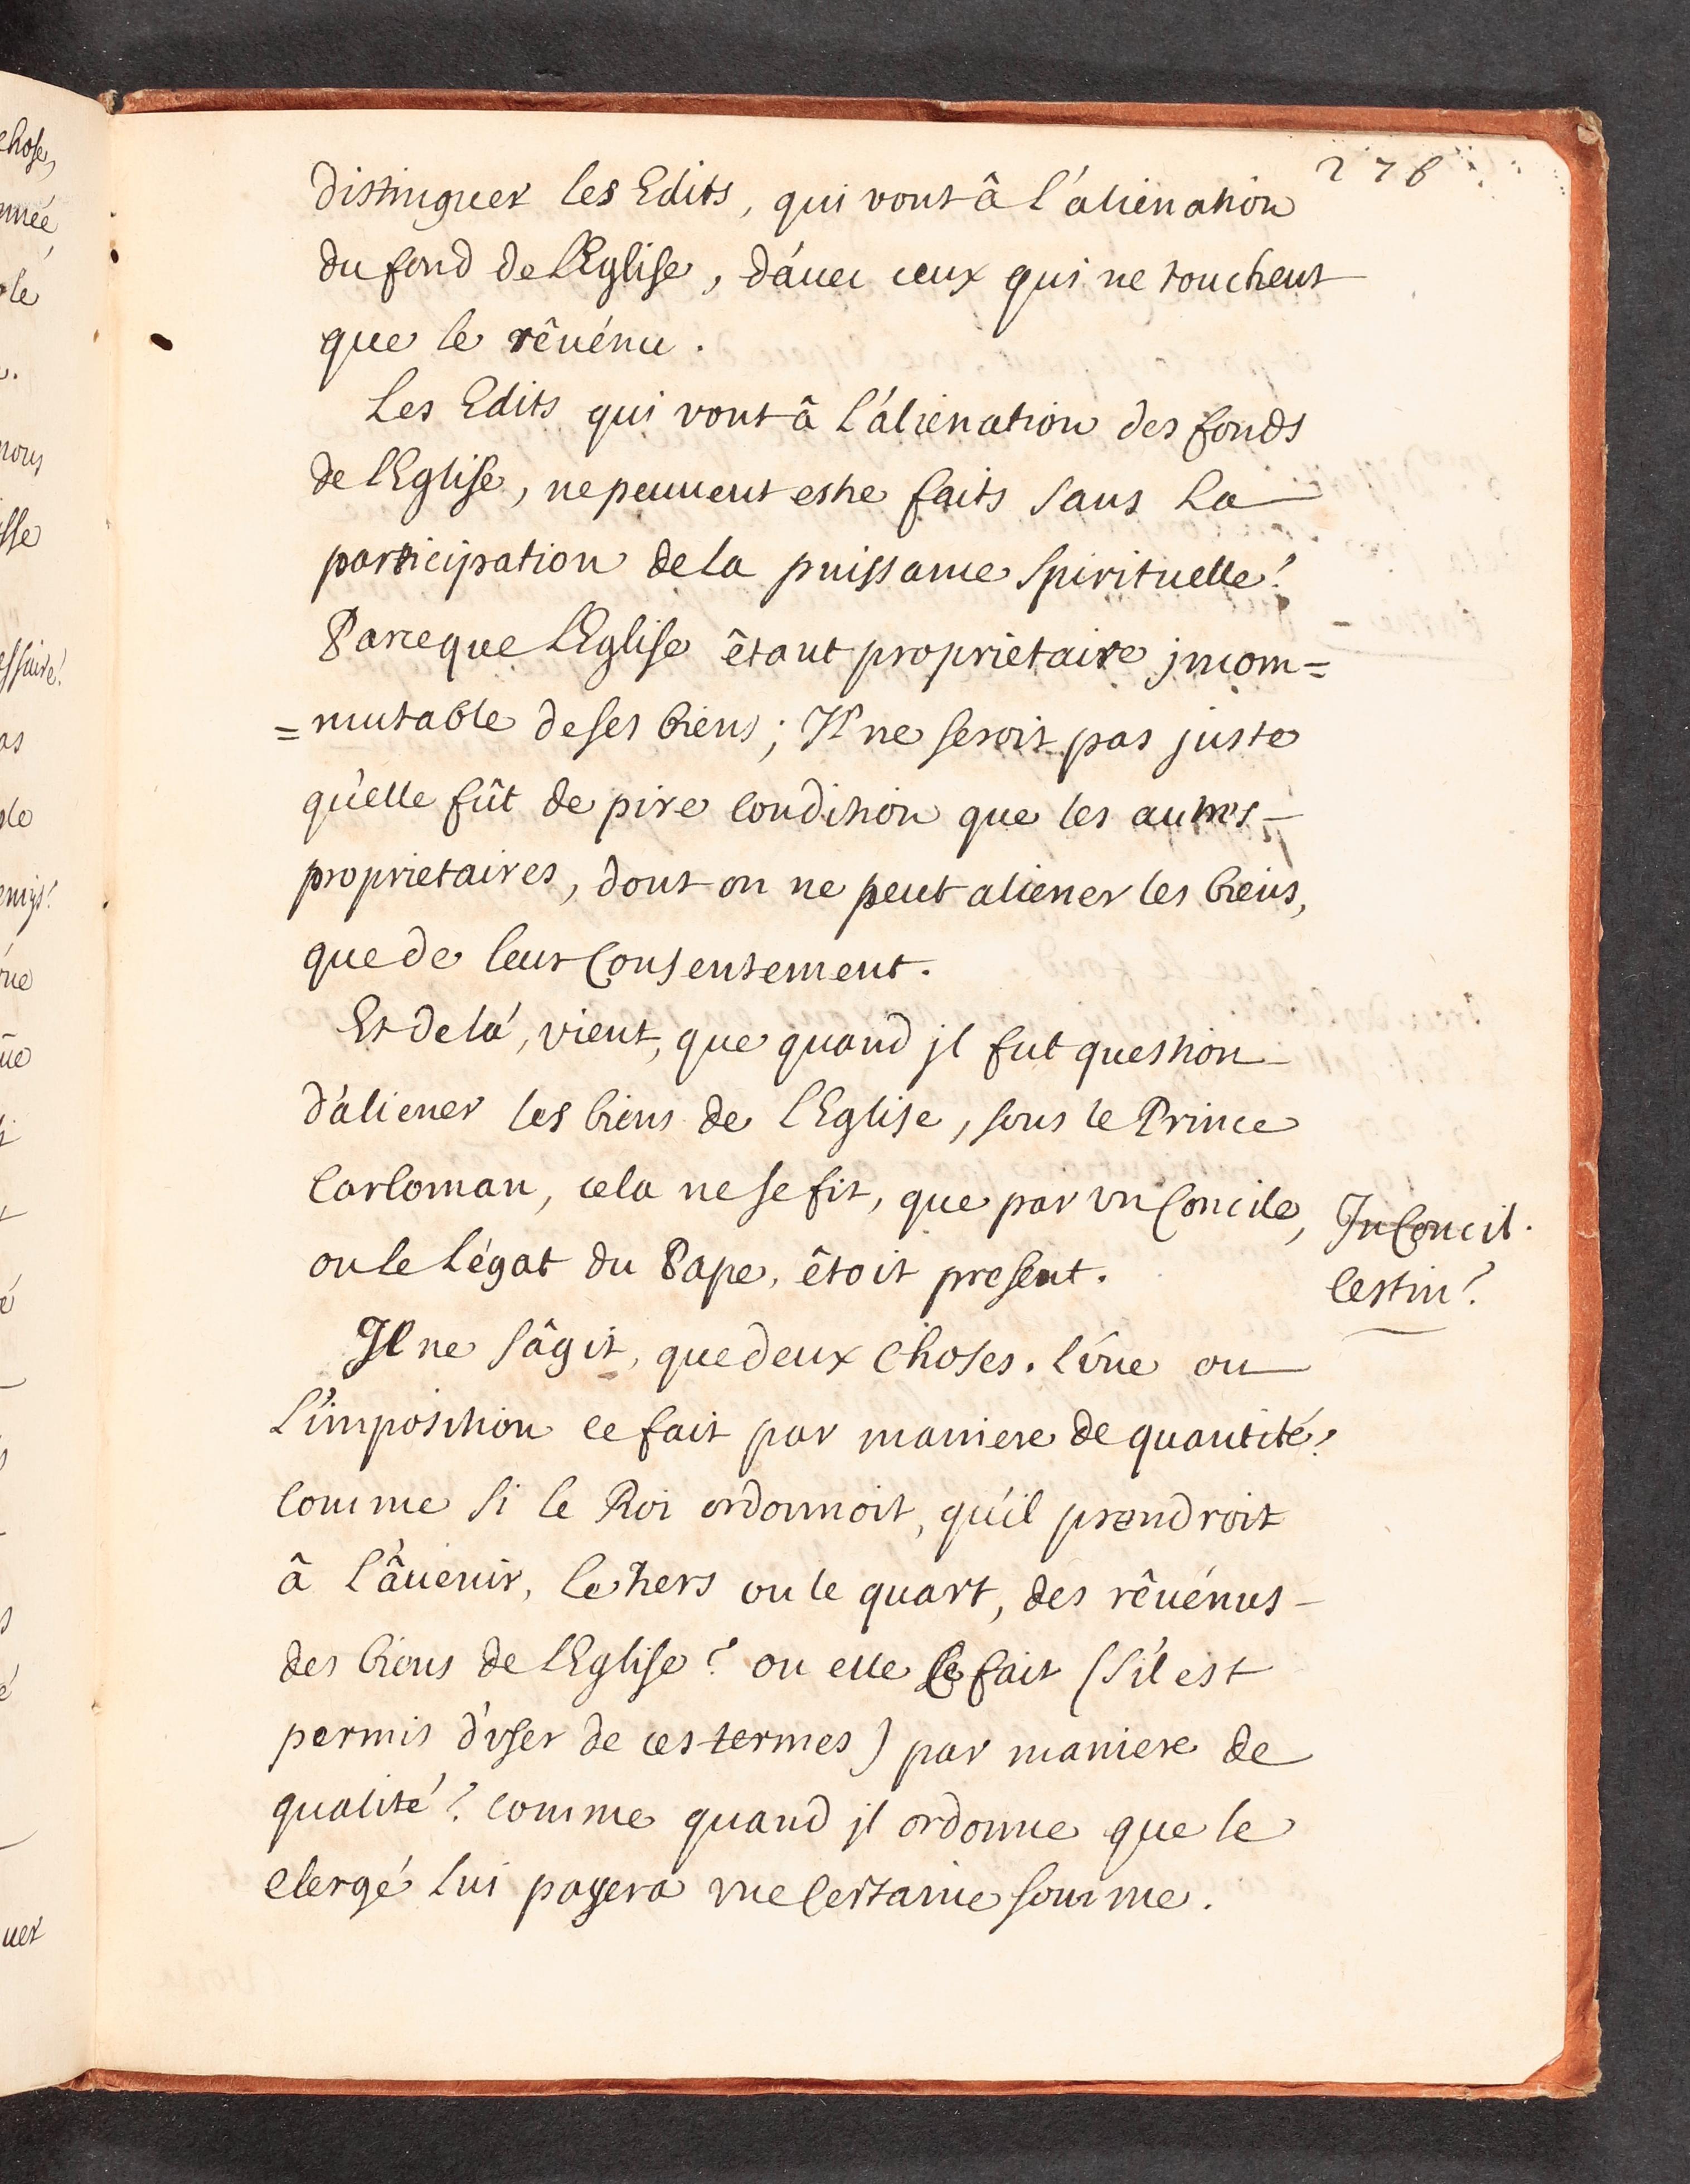 276
distinguer les Edits, qui vont â l'álienation
du fond de l'Eglise, d'avec ceux qui ne touchent
que le rêuénu.
Les Edits qui vont â l'álienation des fonds
de l'Eglise, ne peuuent estre faits sans La
participation de la puissance Spirituelle?
Parceque l'Eglise êtant proprietaire jncom=
=mutable de ses biens; Il ne seroit pas juste
qu'elle fût de pire Condition que les autres
proprietaires, dont on ne peut aliener les biens,
que de leur Consentement.
Et de lá, vient, que quand jl fut question
d'áliener les biens de l'Eglise, sous le Prince
Carloman, cela ne se fit, que par vn Concile,
ou le Légat du Pape, êtoit present.
In Concil.
Lestin?
Il ne s'âgit, que deux Choses. l'vne ou
L'imposition ce fait par maniere de quantité?
Comme si le Roi ordonnoit, qu'il prendroit
â l'âuenir, le tiers ou le quart, des rêuénus
des biens de l'Eglise? ou elle se fait (s'il est
permis d'vser de ces termes) par maniere de
qualité? Comme quand jl ordonne que le
Clergé Lui payera vne Certaine somme.